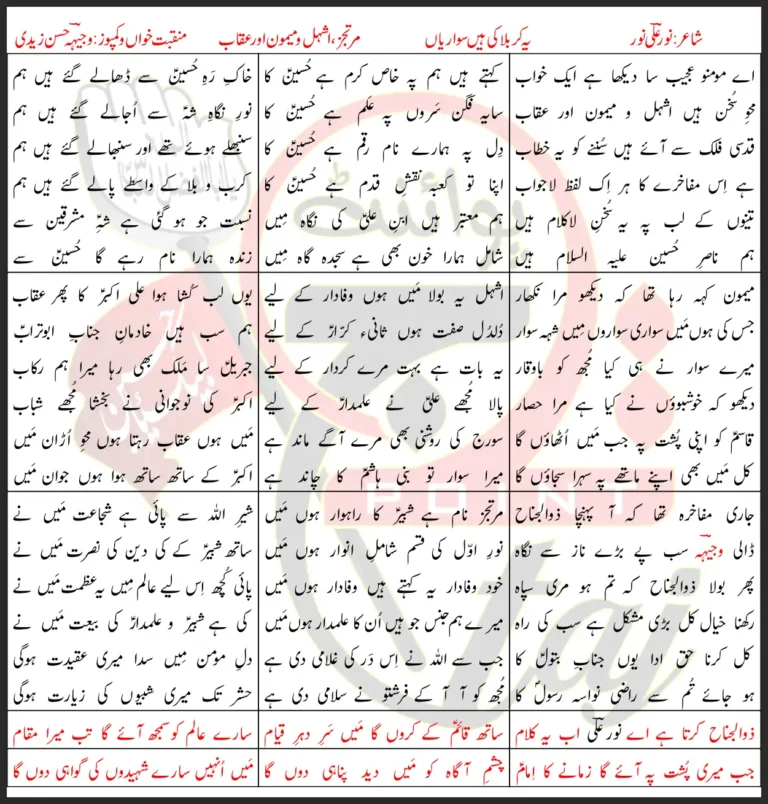 شاعر: نور علی نور
یہ کربلا کی ہیں سواریاں
مرتجز، اشہل و میمون اور عقاب
منقبت خواں و کمپوز: وجیہہ حسن زیدی
اے مومنو عجیب سا دیکھا ہے ایک خواب
محوِ سُخن ہیں اشہل و میمون اور عقاب
قدسی فلک سے آئے ہیں سُننے کو یہ خطاب
ہے اِس مفاخرے کا ہر اِک لفظ لاجواب
تینوں کے لب پہ یہ سُخنِ لاکلام ہیں
ہم ناصرِ حُسین علیہ السلام ہیں
کہتے ہیں ہم پہ خاص کرم ہے حُسینؑ کا
سایہ فگن سَروں پہ عَلم ہے حُسینؑ کا
دِل پہ ہمارے نام رقم ہے حُسینؑ کا
اپنا تو کعبہ نقشِ قدم ہے حُسینؑ کا
ہم معتبر ہیں ابنِ علیؑ کی نگاہ مَیں
شامل ہمارا خون بھی ہے سجدہ گاہ مَیں
خاکِ رہِ حُسینؑ سے ڈھالے گئے ہیں ہم
نورِ نگاہِ شہؑ سے اُجالے گئے ہیں ہم
سنبھلے ہوئے تھے اور سنبھالے گئے ہیں ہم
کرب و بلا کے واسطے پالے گئے ہیں ہم
نسبت جو ہو گئی ہے شہِؑ مشرقین سے
زندہ ہمارا نام رہے گا حُسینؑ سے
میمون کہہ رہا تھا کہ دیکھو مرا نکھار
جس کی ہوں مَیں سواری سواروں مِیں شہہ سوار
میرے سوار نے ہی کیا مُجھ کو باوقار
دیکھو کہ خوشبوؤں نے کیا ہے مرا حصار
قاسمؑ کو اپنی پُشت پہ جب مَیں اُٹھاؤں گا
کل مَیں بھی اپنے ماتھے پہ سہرا سجاؤں گا
اشہل یہ بولا مَیں ہوں وفادار کے لیے
دُلدُل صفت ہوں ثانیٔ کرّارؑ کے لیے
یہ بات ہے بہت مرے کردار کے لیے
پالا مُجھے علیؑ نے علمدارؑ کے لیے
سورج کی روشنی بھی مرے آگے ماند ہے
میرا سوار تو بنی ہاشمؑ کا چاند ہے
یوں لب کُشا ہوا علی اکبرؑ کا پھر عقاب
ہم سب ہیں خادمانِ جنابِ ابوترابؑ
جبریلؑ سا مَلک بھی رہا میرا ہم رکاب
اکبرؑ کی نوجوانی نے بخشا مُجھے شباب
مَیں ہوں عقاب رہتا ہوں محوِ اُڑان مَیں
اکبرؑ کے ساتھ ساتھ ہوا ہوں جوان مَیں
جاری مفاخرہ تھا کہ آ پہنچا ذوالجناح
ڈالی وجیہہ سب پے بڑے ناز سے نگاہ
پھر بولا ذوالجناح کہ تم ہو مری سپاہ
رکھنا خیال کل بڑی مشکل ہے سب کی راہ
کل کرنا حق ادا یوں جنابِ بتولؑ کا
ہو جائے تُم سے راضی نواسہ رسولؐ کا
مرتجز نام ہے شبیرؑ کا راہوار ہوں مَیں
نورِ اوّل کی قسم شاملِ انوار ہوں مَیں
خود وفادار یہ کہتے ہیں وفادار ہوں مَیں
میرے ہم جنس جو ہیں اُن کا علمدار ہوں مَیں
جب سے اللہ نے اِس دَر کی غلامی دی ہے
مُجھ کو آ آ کے فرشتو نے سلامی دی ہے
شیرِ اللہ سے پائی ہے شجاعت مَیں نے
ساتھ شبیرؑ کے کی دین کی نصرت مَیں نے
پائی کُچھ اِس لیے عالم مِیں یہ عظمت مَیں نے
کی ہے شبیرؑ و علمدارؑ کی بیعت مَیں نے
دلِ مؤمن مِیں سدا میری عقیدت ہوگی
حشر تک میری شبیوں کی زیارت ہوگی
ذوالجناح کرتا ہے اے نور علی اب یہ کلام
ساتھ قائمؑ کے کروں گا مَیں سَرِ دہر قیام
سارے عالم کو سمجھ آئے گا تب میرا مقام
جب میری پُشت پہ آئے گا زمانے کا اِمامؑ
چشمِ آگاہ کو مَیں دید پناہی دوں گا
مَیں اُنہیں سارے شہیدوں کی گواہی دوں گا
پوائنٹ
POINT
taj